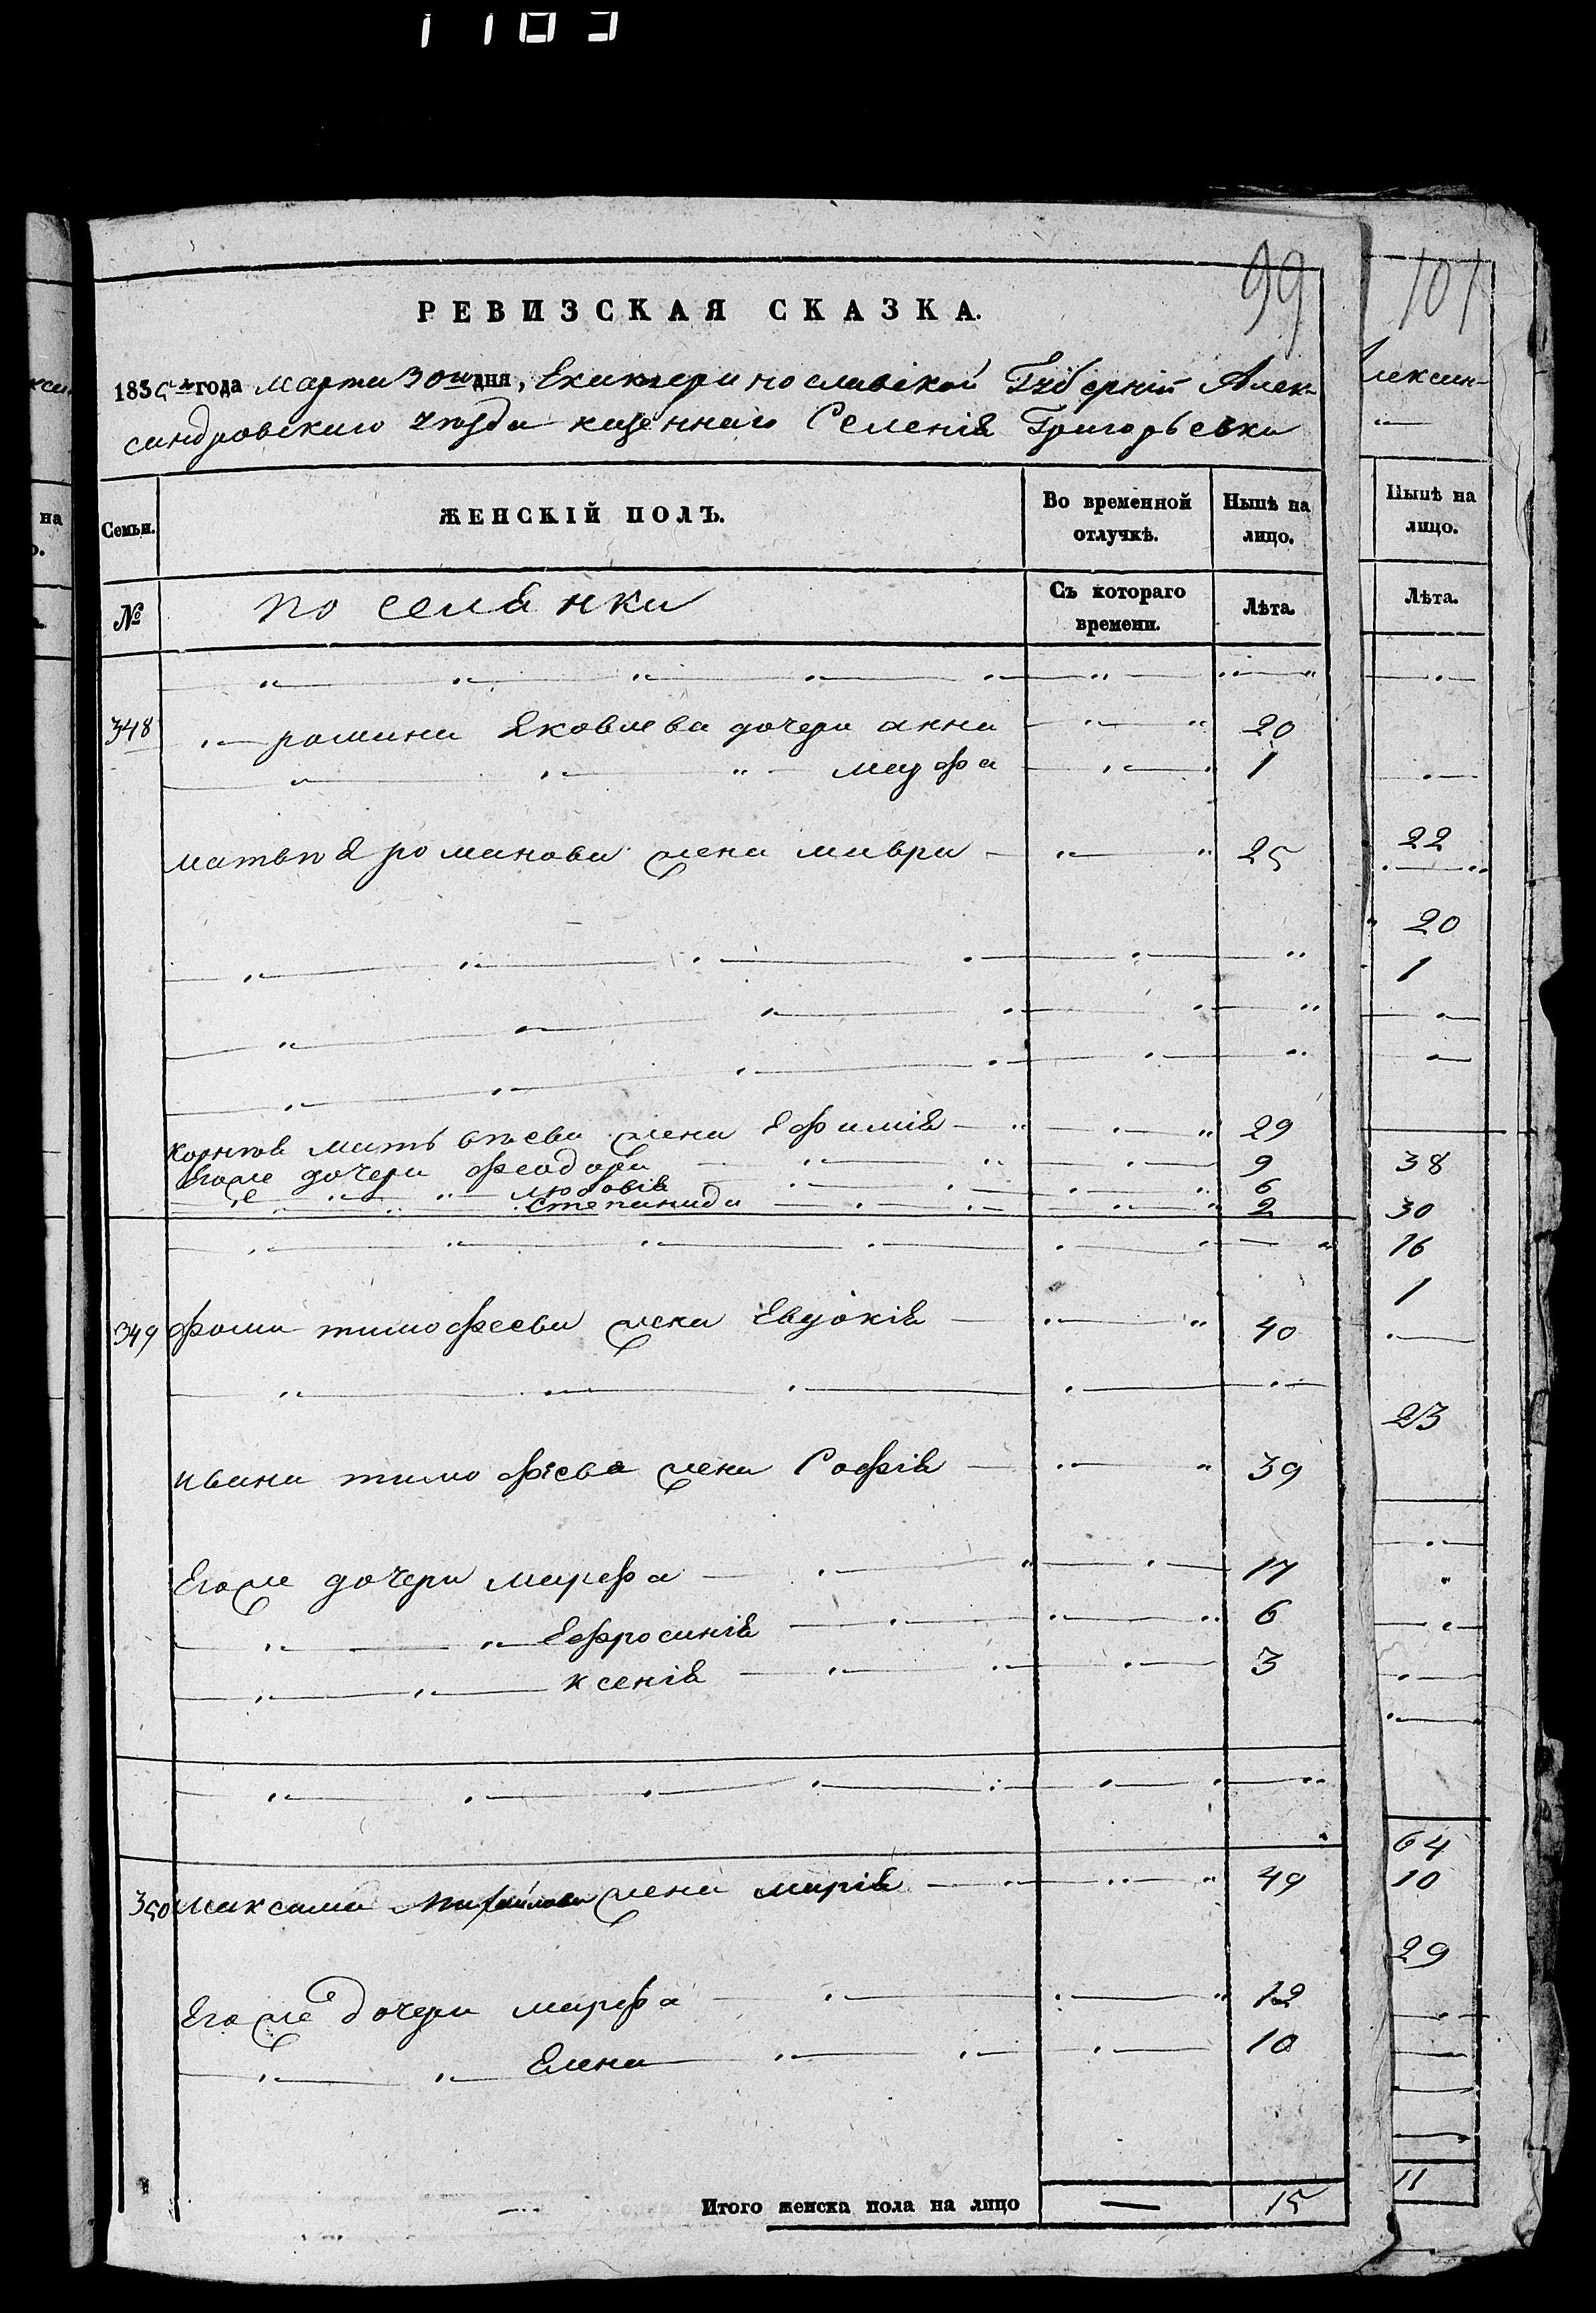 1103
99
РЕВИЗСКАЯ СКАЗКА.
1835 го года марта 30 го дня, Екатеринославской Губерніи Алек-
сандровскаго уезда казеннаго Селенія Григорьевки
Семьи. ЖЕНСКІЙ ПОЛЪ. Во временной отлучкѣ. Нынѣ на лицо.
№ поселянки Съ котораго времени. Лѣта.
348 романа Яковлева дочери анна 20
марфа 1
матвѣя романова жена мавра 25
Корнѣя матвѣева жена Ефимія 29
Егоже дочери феодора 9
любовія 6
степанида 2
349 фомы тимофеева жена Евдокія 40
ивана тимофѣева жена Софія 39
Егоже дочери марфа 17
Ефросинія 6
ксенія 3
350 максима Михайлова жена марія 49
Егоже дочери марфа 12
Елена 10
Итого женска пола на лицо — 15
101
Алексан-
Нынѣ на
лицо.
Лѣта.
22
20
1
38
30
16
1
23
64
10
29
11
на